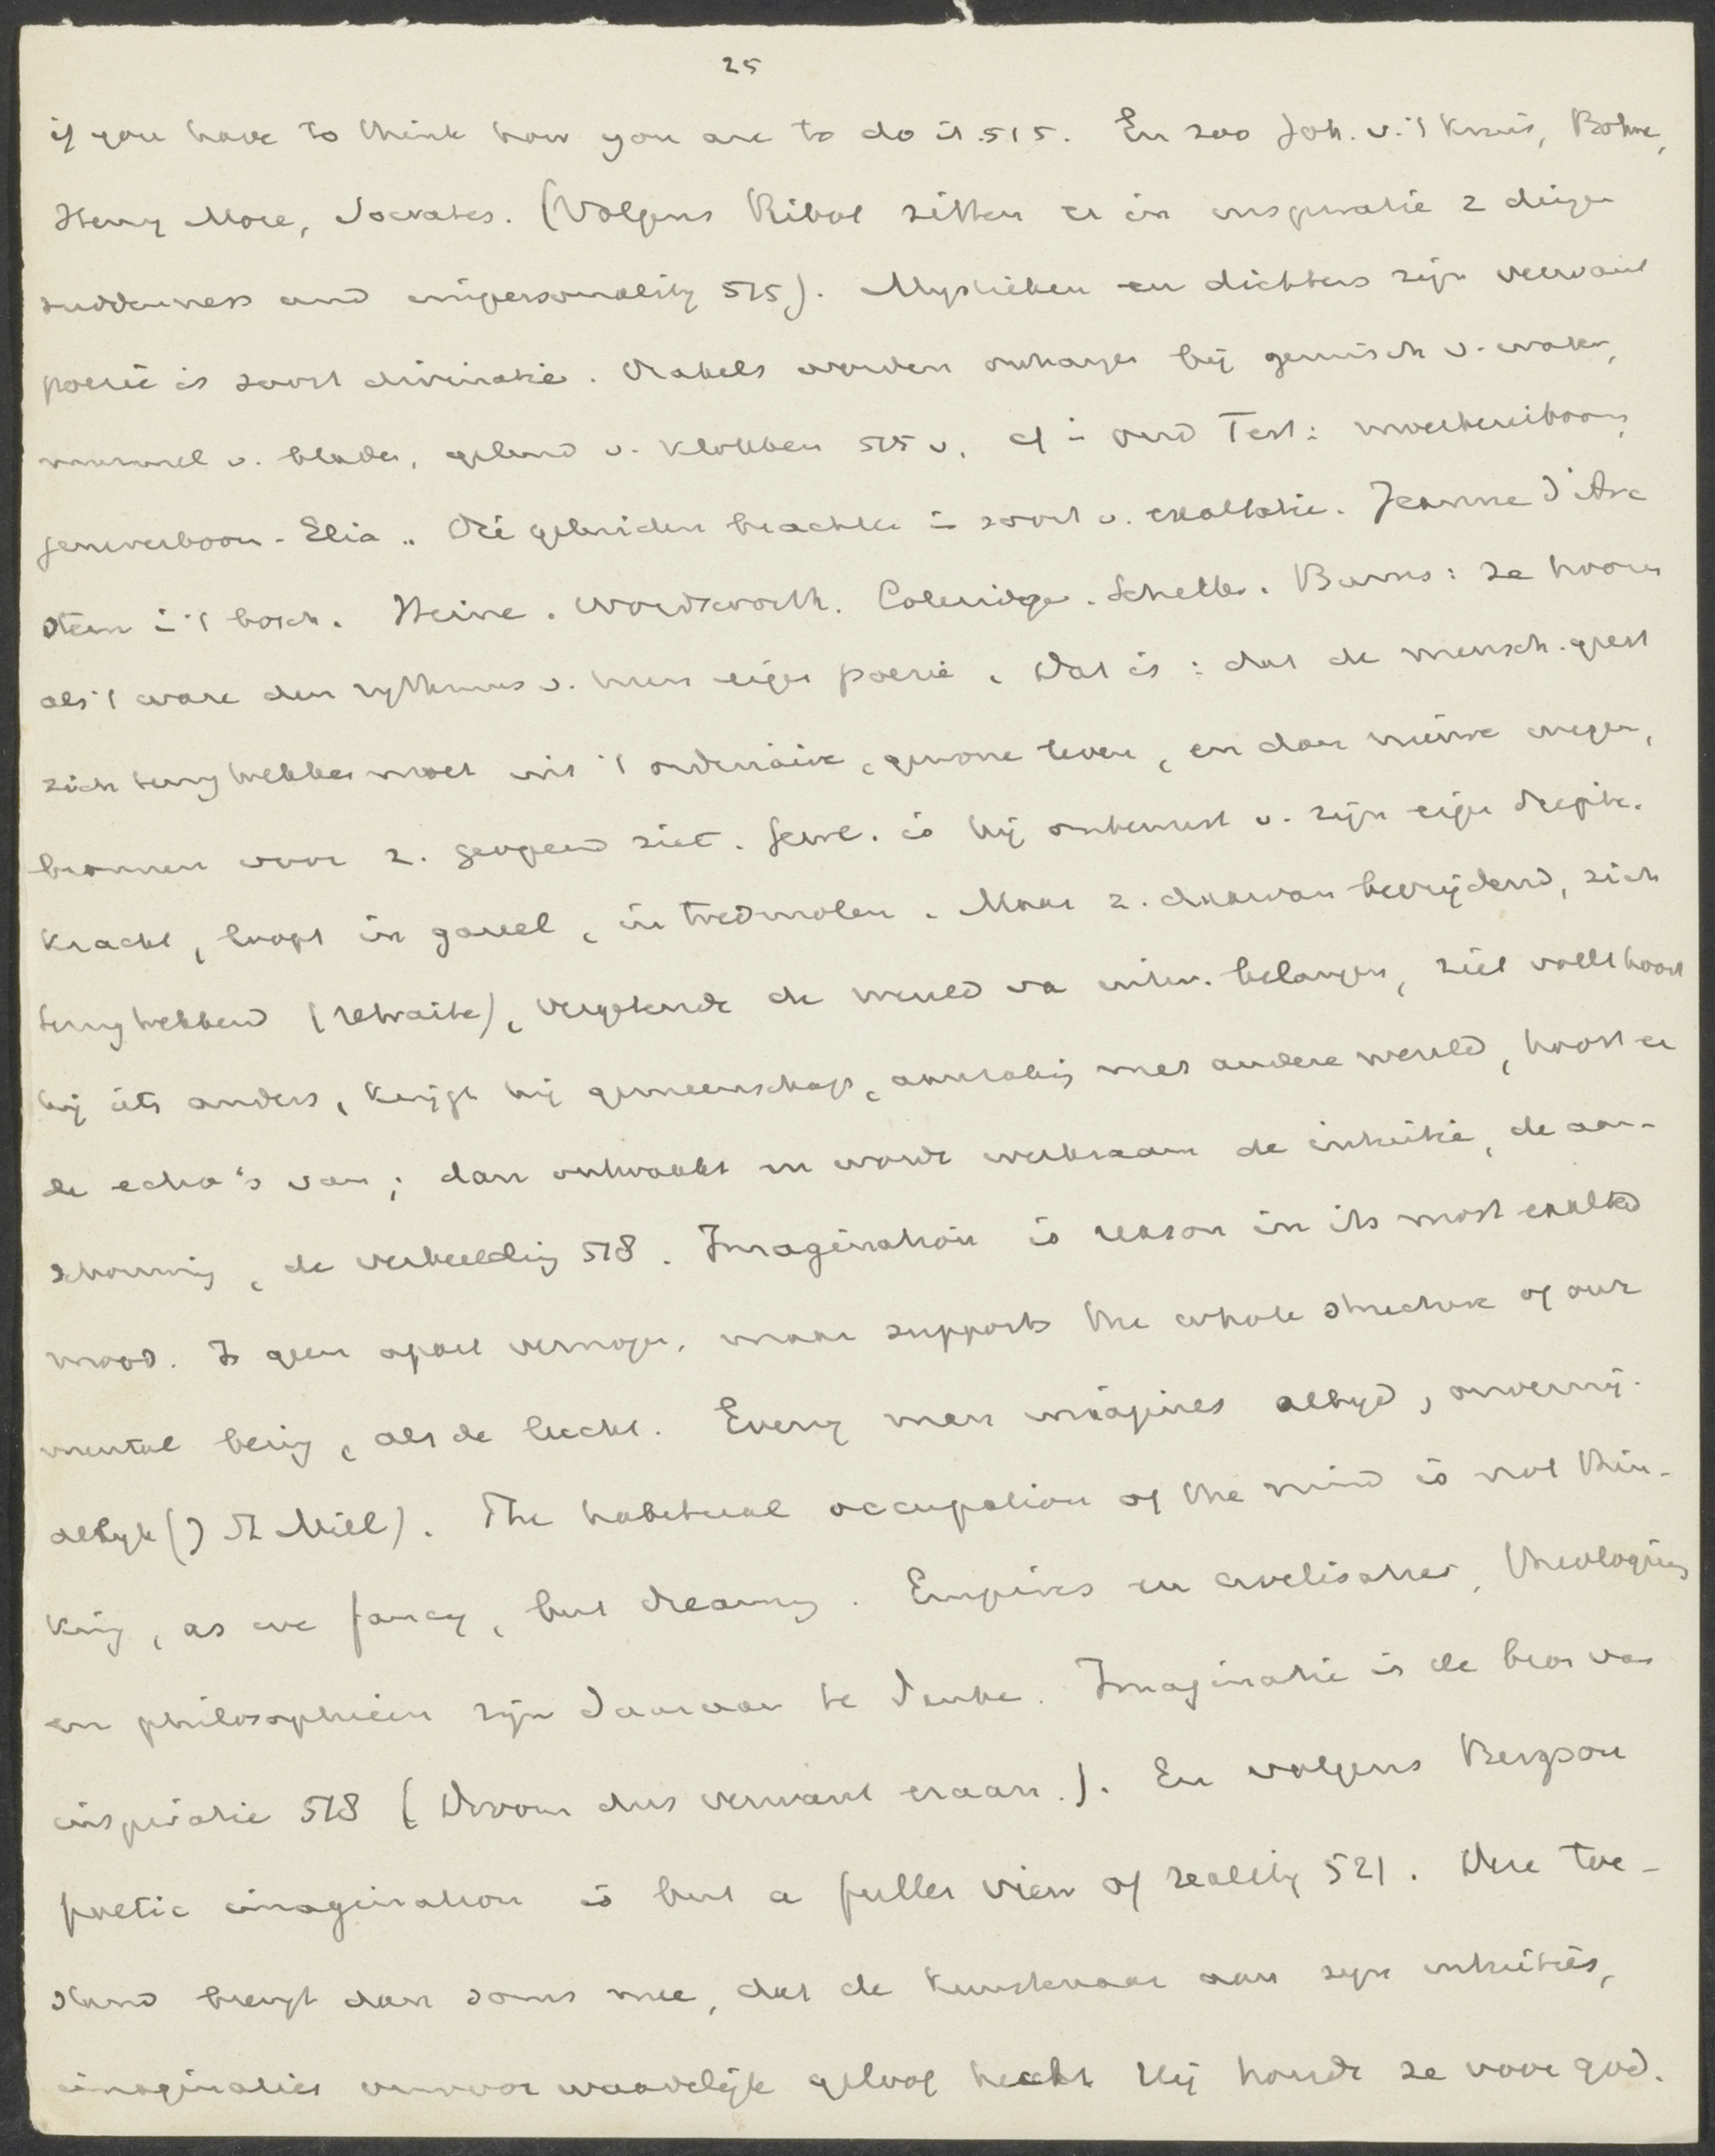 25
if you have to think how you are to do it. 515. En zoo Joh. v. 't Kruis, Böhme,
Henry More, Socrates. (Volgens Ribot zitten er in inspiratie 2 dingen
suddenness and impersonality 515). Mystieken en dichters zijn verwant
poezie is soort divinatie. Orakels worden ontvangen bij geruisch v. water,
murmel v. blader, geluid v. klokken 515 v. cf i oud Test: moerbeiboom,
jeneverboom - Elia. Die geluiden brachten i soort v. exaltatie. Jeanne d'Arc
stem i 't bosch. Heine. Wordsworth. Coleridge. Schelley. Burns: ze hooren
als 't ware den rythmus v. hun eigen poezie. Dat is: dat de mensch. geest
zich terugtrekken moet uit 't ordinaire, gewone leven, en dan nieuwe wegen,
bronnen voor z. geopend ziet. Gew. is hij onbewust v. zijn eigen diepste
kracht, loopt in gareel, in tredmolen. Maar z. daarvan bevrijdend, zich
terugtrekkend (retraite), vergetende de wereld va uitw. belangen, ziet voelt hoort
hij iets anders, krijgt hij gemeenschap, aanraking met andere wereld, hoort er
de echo's van; dan ontwaakt en wordt werkzaam de intuitie, de aan-
schouwing, de verbeelding 518. Imagination is reason in its most exalted
mood. Is geen apart vermogen, maar supports the whole structure of our
mental being, als de lucht. Every man imagines altyd, onvermij-
delyk (J St Mill). The habitual occupation of the mind is not thin-
king, as we fancy, but dreaming. Empires en civilisaties, theologieen
en philosophieën zijn daaraan te danken. Imaginatie is de bron van
inspiratie 518 (Droom dus verwant eraan.). En volgens Bergson
poetic imagination is but a fuller view of reality 521. Die toe-
stand brengt dan soms mee, dat de kunstenaar aan zijn intuities,
imaginaties onvoorwaardelijk geloof hecht. Hij houdt ze voor god.